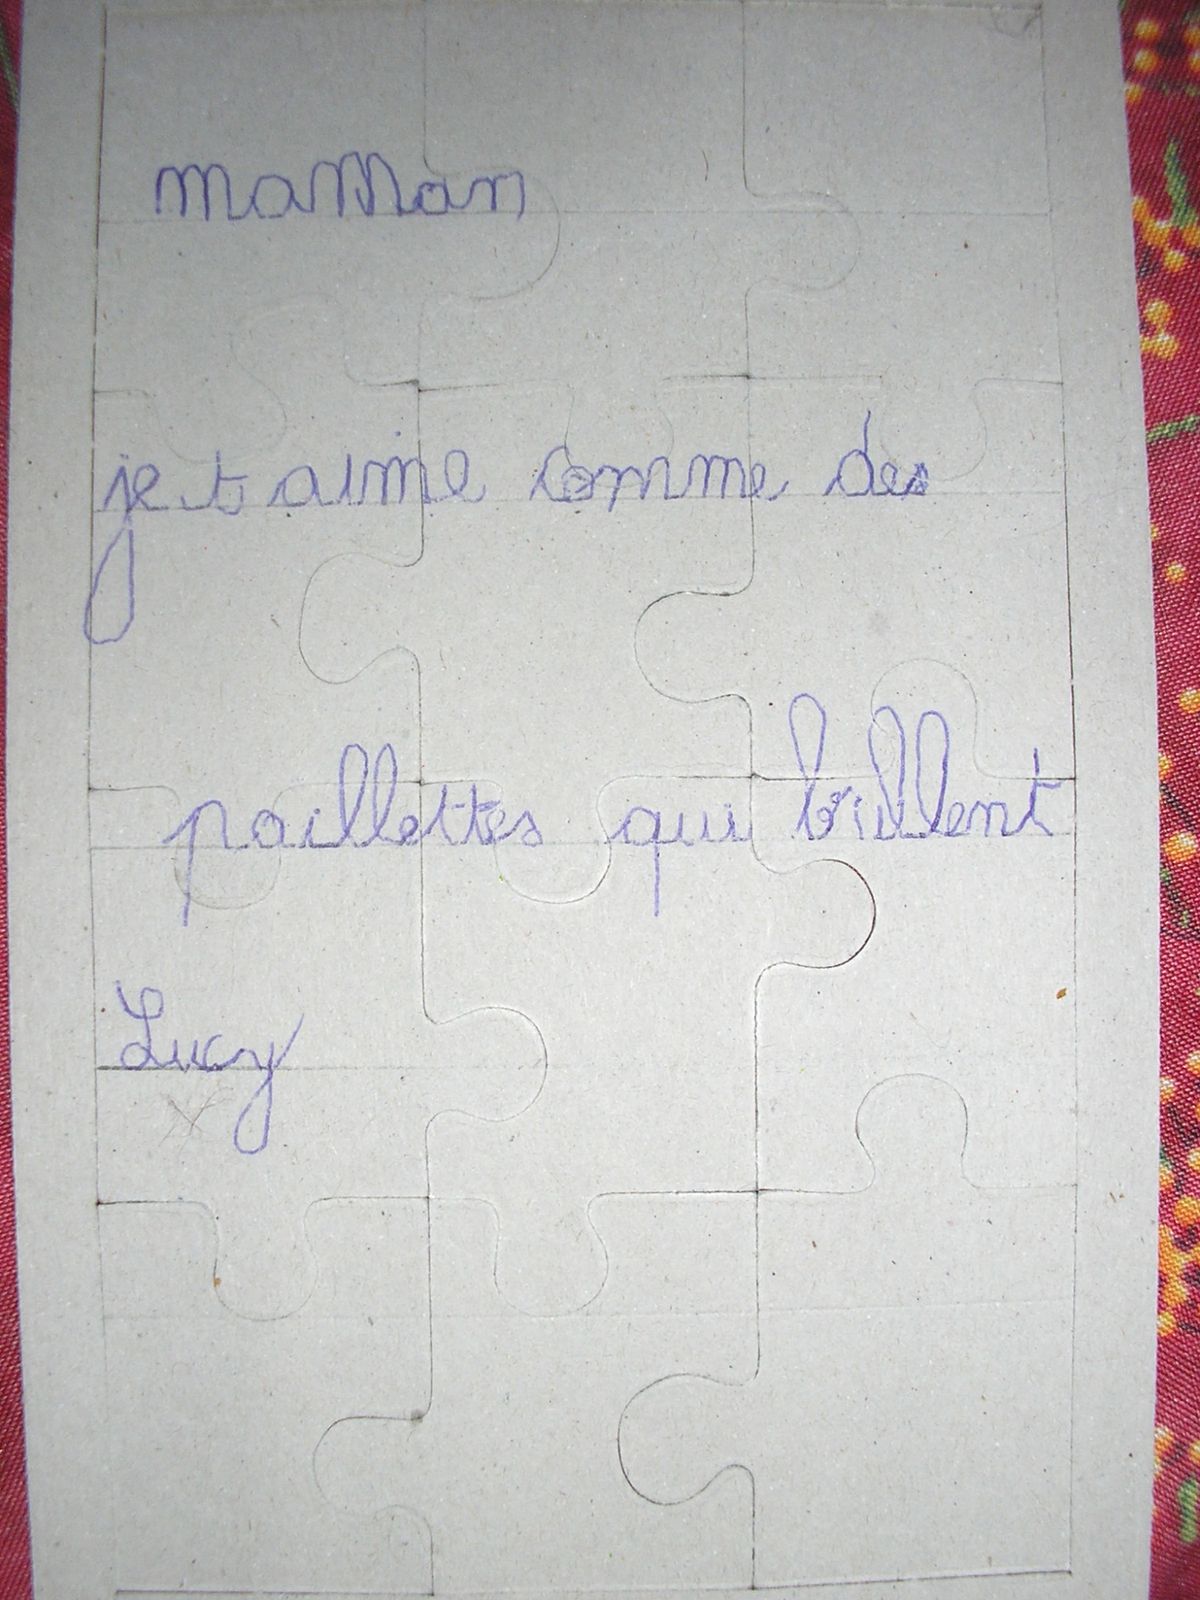 maMan
je t aime comme des
paillettes qui brillent
Lucy